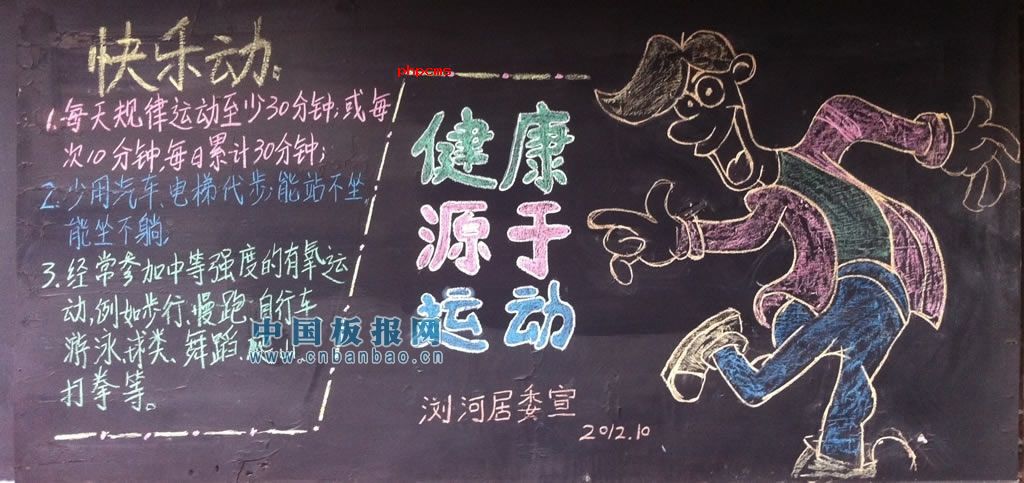 快乐动
1.每天规律运动至少30分钟;或每
次10分钟,每日累计30分钟;
2.少用汽车、电梯代步;能站不坐,
能坐不躺,
3.经常参加中等强度的有氧运
动,例如步行、慢跑、自行车
游泳、球类、舞蹈、
打拳等。
phpcms
健康
源于
运动
浏河居委宣
2012.10
中国板报网
www.cnbanbao.cn